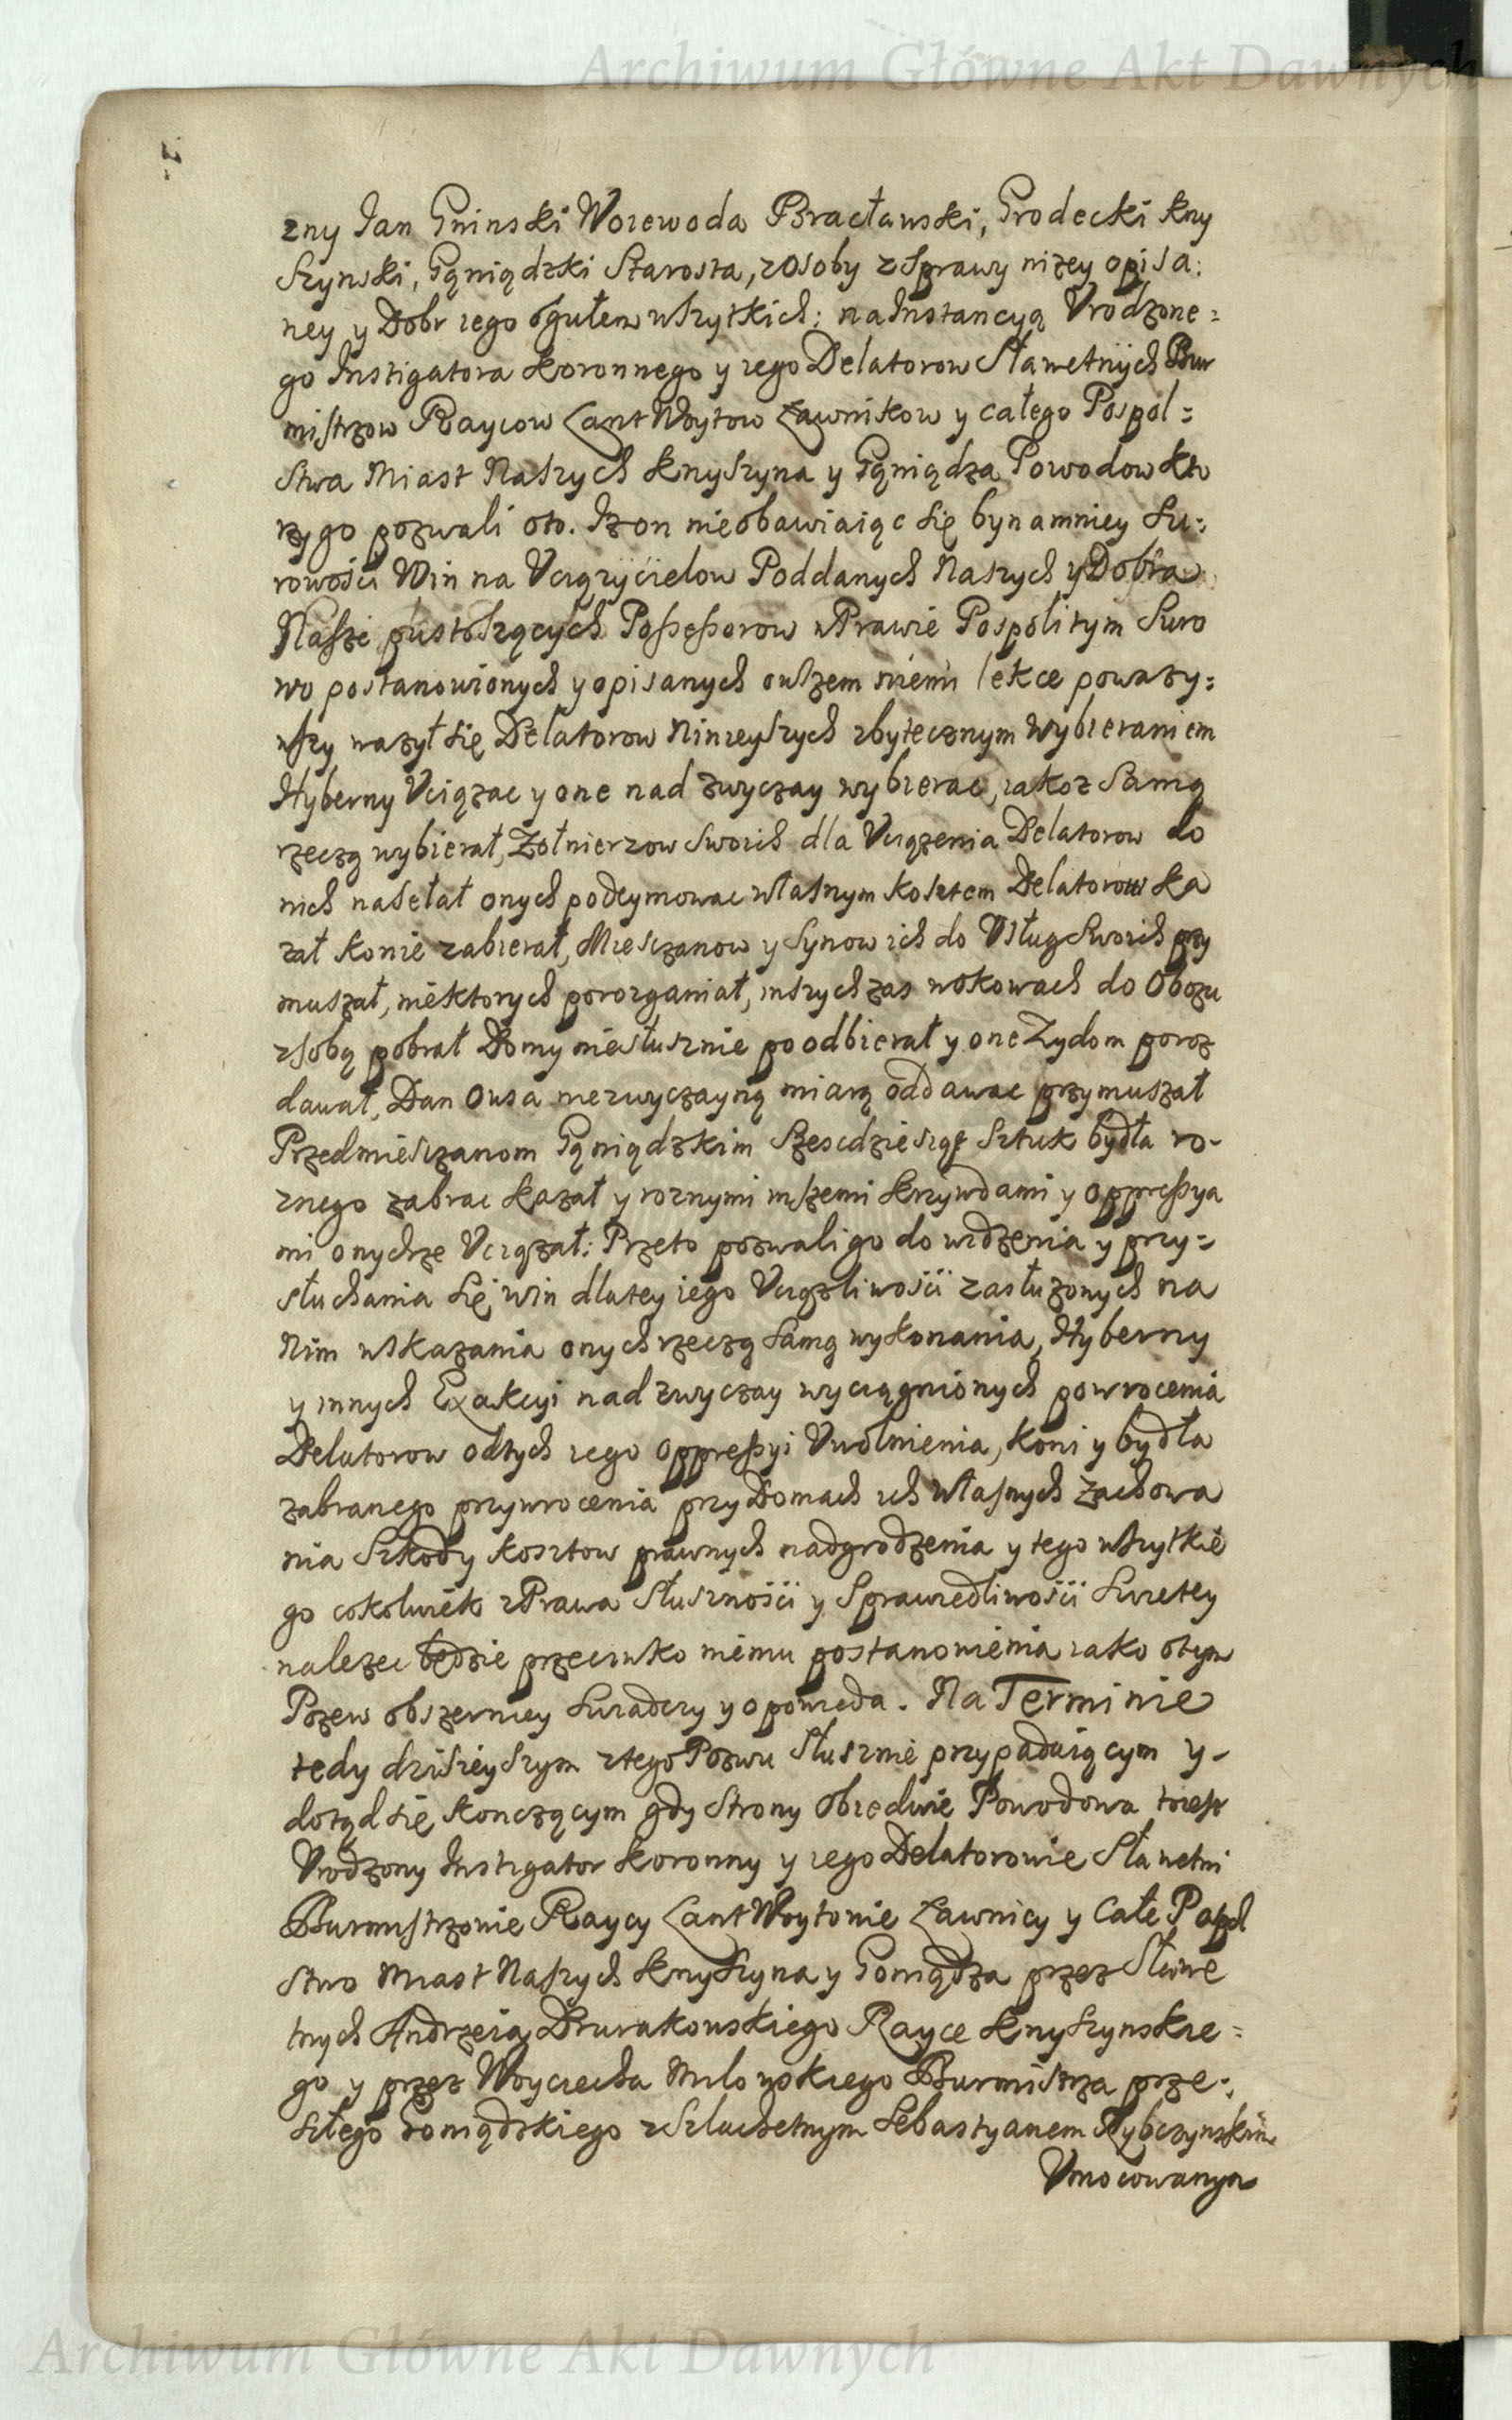 Archiwum Główne Akt Dawnych
zny Jan Gninski Woiewoda Bracławski, Grodecki kny
szynski, Gąniądzki Starosta, z Osoby z Sprawy nizey opisa:
ney y Dobr iego ogułem wszytkich: na Instancyą Vrodzone=
go Instigatora koronnego y iego Delatorow Sławetnych Bur
mistrzow Raycow Lant Woytow Ławnikow y całego Pospol=
stwa Miast Naszych knyszyna y Gąniądza Powodow kto
rzy go pozwali oto. Iz on nieobawiaiąc się bynamniey su:
rowości Win na Vciązycielow Poddanych Naszych y Dobra
Nasze pustoszących Possessorow w Prawie Pospolitym Suro
wo postanowionych y opisanych owszem niemi lekce powazy=
wszy wazył się Delatorow Ninieyszych zbytecznym wybieraniem
Hyberny Vciązac y one nad zwyczay wybierac, iakoz samą
rzeczą wybierał, Zołnierzow swoich dla Vciązenia Delatorow do
nich nasełał onych podeymowac własnym kosztem Delatorow ka
zał konie zabierał, Miesczanow y synow ich do Vsług swoich przy
muszał, niektorych porozganiał, inszych zas w okowach do Obozu
z sobą pobrał Domy niesłusznie poodbierał y one Zydom poroz
dawał, Dan Owsa niezwyczayną miarą oddawac przymuszał
Przedmiesczanom Gąniądzkim Szescdziesiąt Sztuk bydła ro-
znego zabrac kazał y roznymi inszemi krzywdami y oppressya
mi onychze Vciązał: Przeto pozwali go do widzenia y przy=
słuchania się win dla tey iego Vciązliwości zasłuzonych na
Nim wskazania onych rzeczą samą wykonania, Hyberny
y innych Exakcyi nad zwyczay wyciągnionych powrocenia
Delatorow od tych iego oppressyi Vwolnienia, koni y bydła
zabranego przywrocenia przy Domach ich własnych zachowa
nia Szkody kosztow prawnych nadgrodzenia y tego wszytkie
go cokolwiek z Prawa Słuszności y Sprawiedliwości Swietey
nalezec będzie przeciwko niemu postanowienia iako o tym
Pozew obszerniey swiadczy y opowieda. Na Terminie
tedy dzisieyszym z tego Pozwu Słusznie przypadaiącym y-
dotąd się konczącym gdy Strony Obiedwie Powodowa to iest
Vrodzony Instigator koronny y iego Delatorowie Sławetni
Burmistrzowie Raycy Lant Woytowie Ławnicy y Całe Pospol
stwo Miast Naszych knyszyna y Goniądza przez Sławe
tnych Andrzeia Drurakowskiego Rayce knyszynskie=
go y przez Woyciecha Burmistrza prze=
szłego Goniądzkiego z Szlachetnym Sebastyanem Rybczynskim
Vmocowanym
Archiwum Główne Akt Dawnych